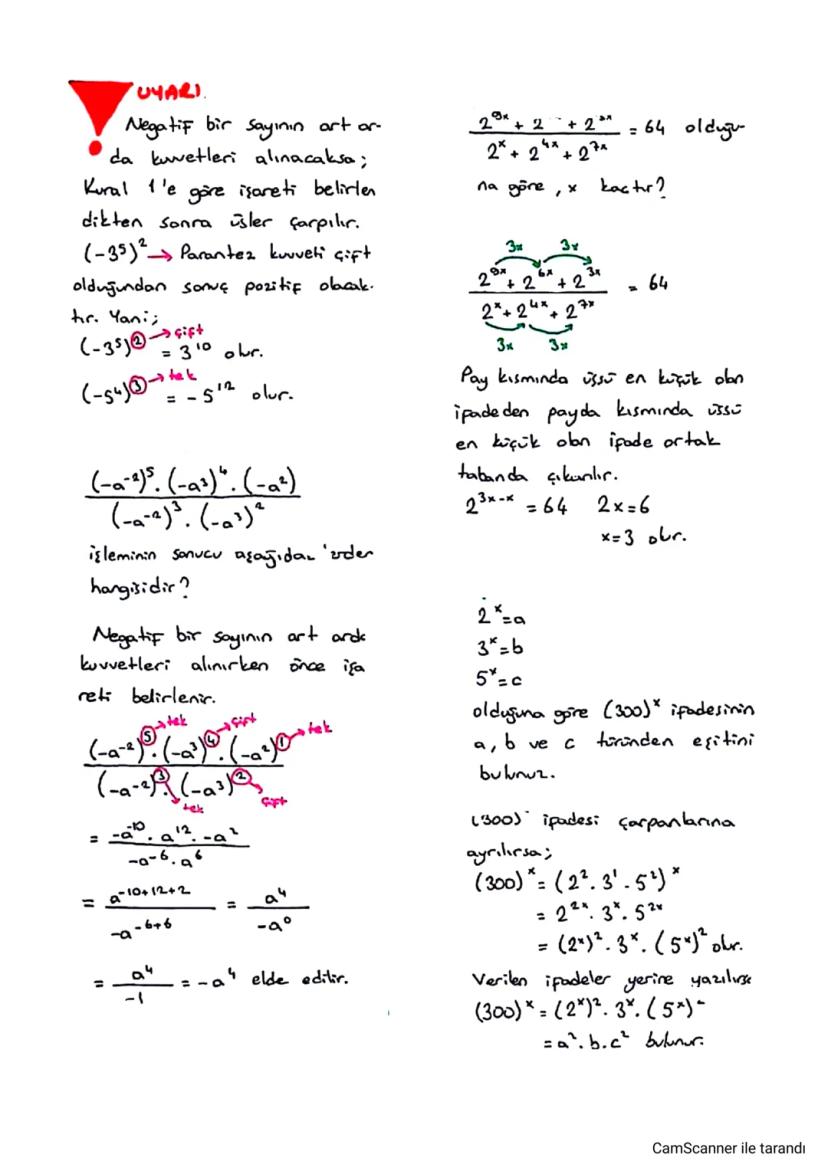 UYARI.
Negatif bir sayının art ar-
da kuvvetleri alınacaksa;
Kural 1'e göre işareti belirlen
dikten sonra üsler çarpılır.
(-3⁵)² → Parantez kuvveti çift
olduğundan sonuç pozitif olacak-
tır. Yani;
(-3⁵)² → çift = 3¹⁰ olur.
(-5⁴)³ → tek = -5¹² olur.
(-a⁻²)⁵ . (-a³)⁴ . (-a²)
(-a⁻²)³ . (-a³)²
işleminin sonucu aşağıda
hangisidir?
Negatif bir sayının art arda
kuvvetleri alınırken önce işa
reti belirlenir.
tek çift tek
(-a⁻²)⁵ . (-a³)⁴ . (-a²)¹
(-a⁻²)³ . (-a³)²
tek çift
= -a⁻¹⁰ . a¹² . -a²
-a⁻⁶ . a⁶
= a⁻¹⁰⁺¹²⁺² = a⁴
-a⁻⁶⁺⁶ -a⁰
= a⁴ = -a⁴ elde edilir.
-1
2⁹ˣ + 2 + 2³ˣ = 64 olduğu-
2ˣ + 2⁴ˣ + 2⁷ˣ
na göre, x kaçtır?
3x 3x
2⁹ˣ + 2⁶ˣ + 2³ˣ = 64
2ˣ + 2⁴ˣ + 2⁷ˣ
3x 3x
Pay kısmında üssü en küçük olan
ifadeden payda kısmında üssü
en küçük olan ifade ortak
tabanda çıkarılır.
2³ˣ⁻ˣ = 64 2x=6
x=3 olur.
2ˣ=a
3ˣ=b
5ˣ=c
olduğuna göre (300)ˣ ifadesinin
a, b ve c türünden eşitini
bulunuz.
(300) ifadesi çarpanlarına
ayrılırsa;
(300)ˣ = (2² . 3¹ . 5²)ˣ
= 2²ˣ . 3ˣ . 5²ˣ
= (2ˣ)² . 3ˣ . (5ˣ)² olur.
Verilen ifadeler yerine yazılırsa
(300)ˣ = (2ˣ)² . 3ˣ . (5ˣ)²
= a² . b . c² bulunur.
CamScanner ile tarandı